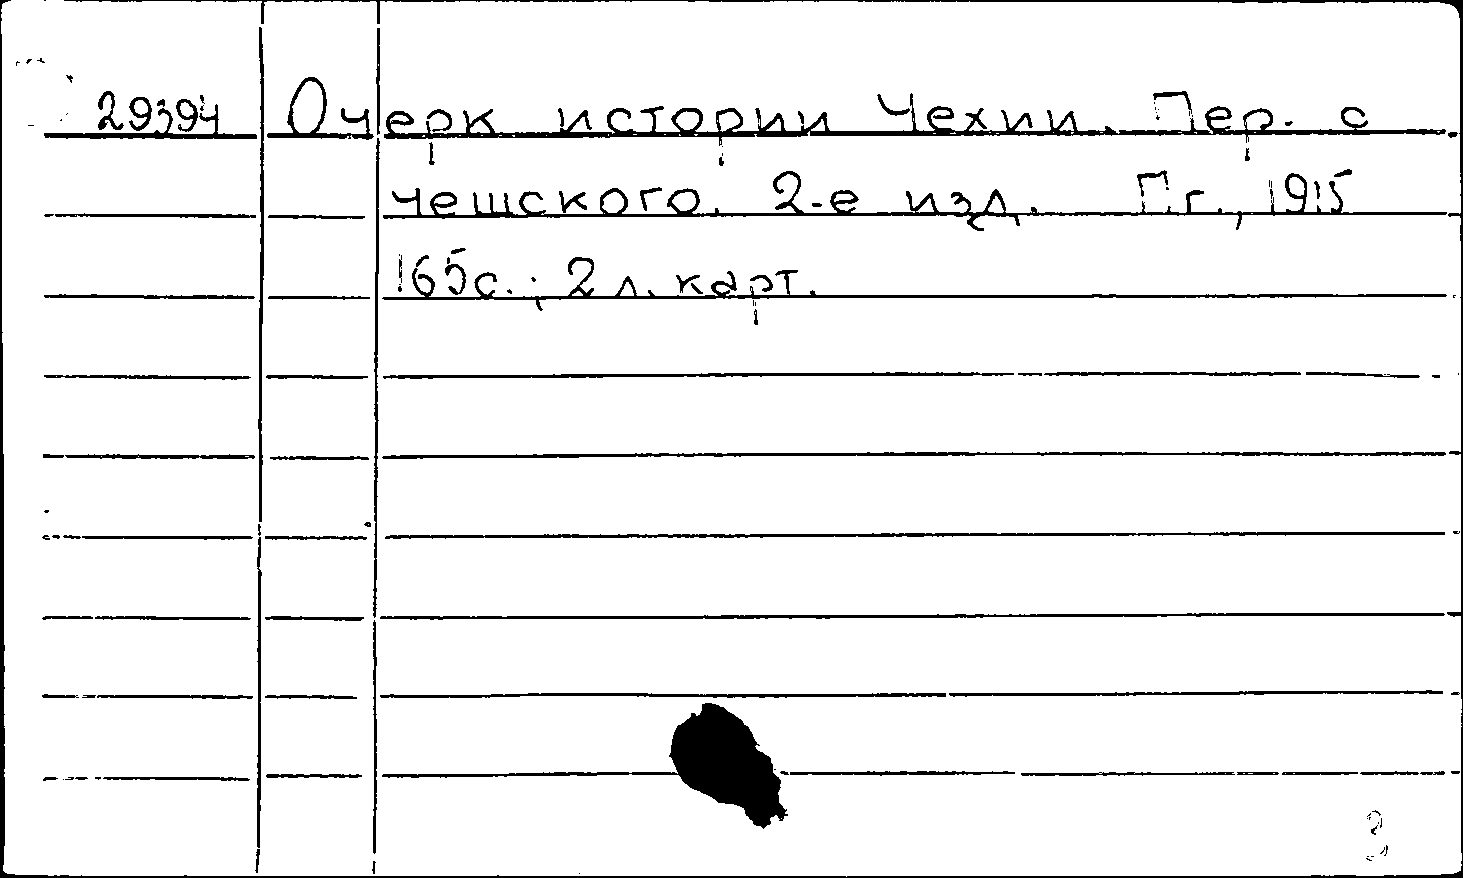 29394 Очерк истории Чехии. Пер. с
чешского. 2-е изд. П.г., 1915
165с.; 2 л. карт.